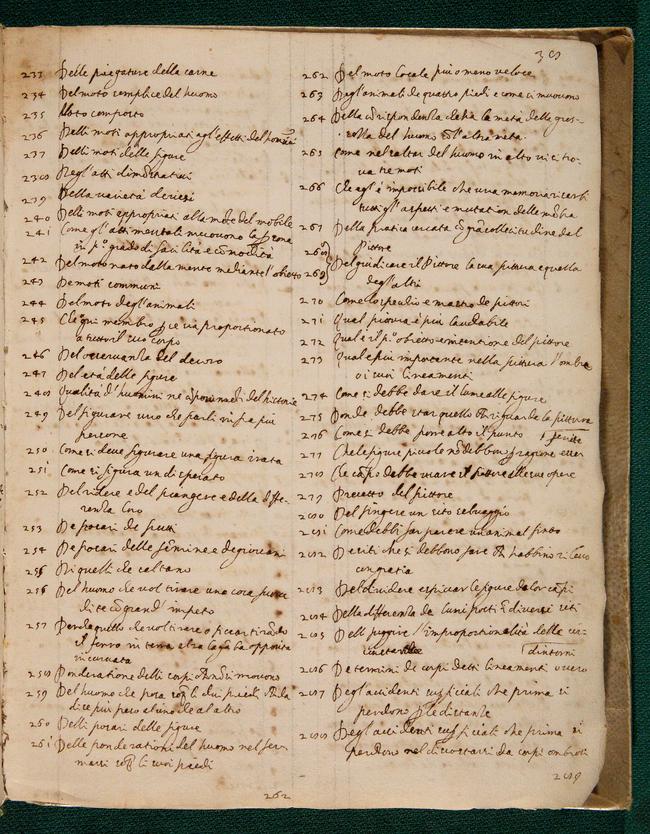 30
233 Delle piegature della carne
234 Del moto semplice del huomo
235 Moto composto
236 Delli moti appropriati agl'effetti del
237 Delli moti delle figure
238 Degl'atti dimostrativi
239 Della varietà de visi
240 Delli moti appropriati alla mo̅te del mobile
241 Come gl'atti mentali muovono la p̱sona
in p.º grado di facilità e co̅modità
242 Del moto nato dalla mente mediante l'obietto
243 De moti communi
244 Del moto degl'animali
245 Che ogni membro p se sia proportionato
a tutto il suo corpo
246 Del osservanza del decoro
247 Del età delle figure
248 Qualità d'huomini ne componimenti del historie
249 Del figurare uno che parli infra più
persone
250 Come si deve figurare una figura irata
251 Come si figura un disperato
252 Del ridere e del piangere e della diffe-
renza loro
253 De posari de putti
254 De posari delle femine e de giovani
255 Di quelli che saltano
256 Del huomo che vol tirare una cosa fuora
di se co̅ grand' impeto
257 Perche quello che vol tirare o ficcar tirando
il ferro in terra alza la ga̅ba opposita
incurvata
258 Ponderatione delli corpi che no̅ si movono
259 Del huomo che posa sop̱ li dui piedi che da
di se più peso al uno che al altro
260 Delli posari delle figure
261 Delle ponderationi del huomo nel fer-
marsi sop̱ li suoi piedi
262 Del moto locale più o meno veloce
263 Degl'animali de quatro piedi e come si muovono
264 Della co̅rispondenza che ha la metà della gros-
sezza del huomo co̅ l'altra metà
265 Come nel saltar del huomo in alto vi si tro-
va tre moti
266 Che egl'è impossibile che una memoria riserbi
tutti gl'aspetti e mutation delle me̅bra
267 Della pratica cercata co̅ gra̅ sollecitudine dal
268 Pittore
269 Del giudicare il Pittore la sua pittura e quella
degl'altri
270 Come lo speclio e maestro de pittori
271 Qual pittura è più laudabile
272 Qual e il p.º obietto e intentione del pittore
273 Quale e più importante nella pittura l'ombre
o i suoi lineamenti
274 Come si debbe dare il lume alle figure
275 Donde debbe star quello che riguarda la pittura
276 Come si debbe porre alto il punto
277 Che le figure piccole no̅ debbon p ragione esser finite
278 Che ca̅po debbe usare il pittore alle sue opere
279 Precetto del pittore
280 Del fingere un sito selvaggio
281 Come debbi far parere un animal finto
282 De visi che si debbono fare che habbino rilievo
con gratia
283 Del dividere e spiccar le figure da lor ca̅pi
284 Della differenza de lumi posti i̅ diversi siti
285 Dell fuggire l'improportionalità delle cir-
cunstantie dintorni
286 De termini de corpi detti lineamenti overo
287 Degl'accidenti superficiali che prima si
perdono p le distantie
288 Degl'accidenti superficiali che prima si
perdono nel discostarsi da corpi ombrosi
289
262